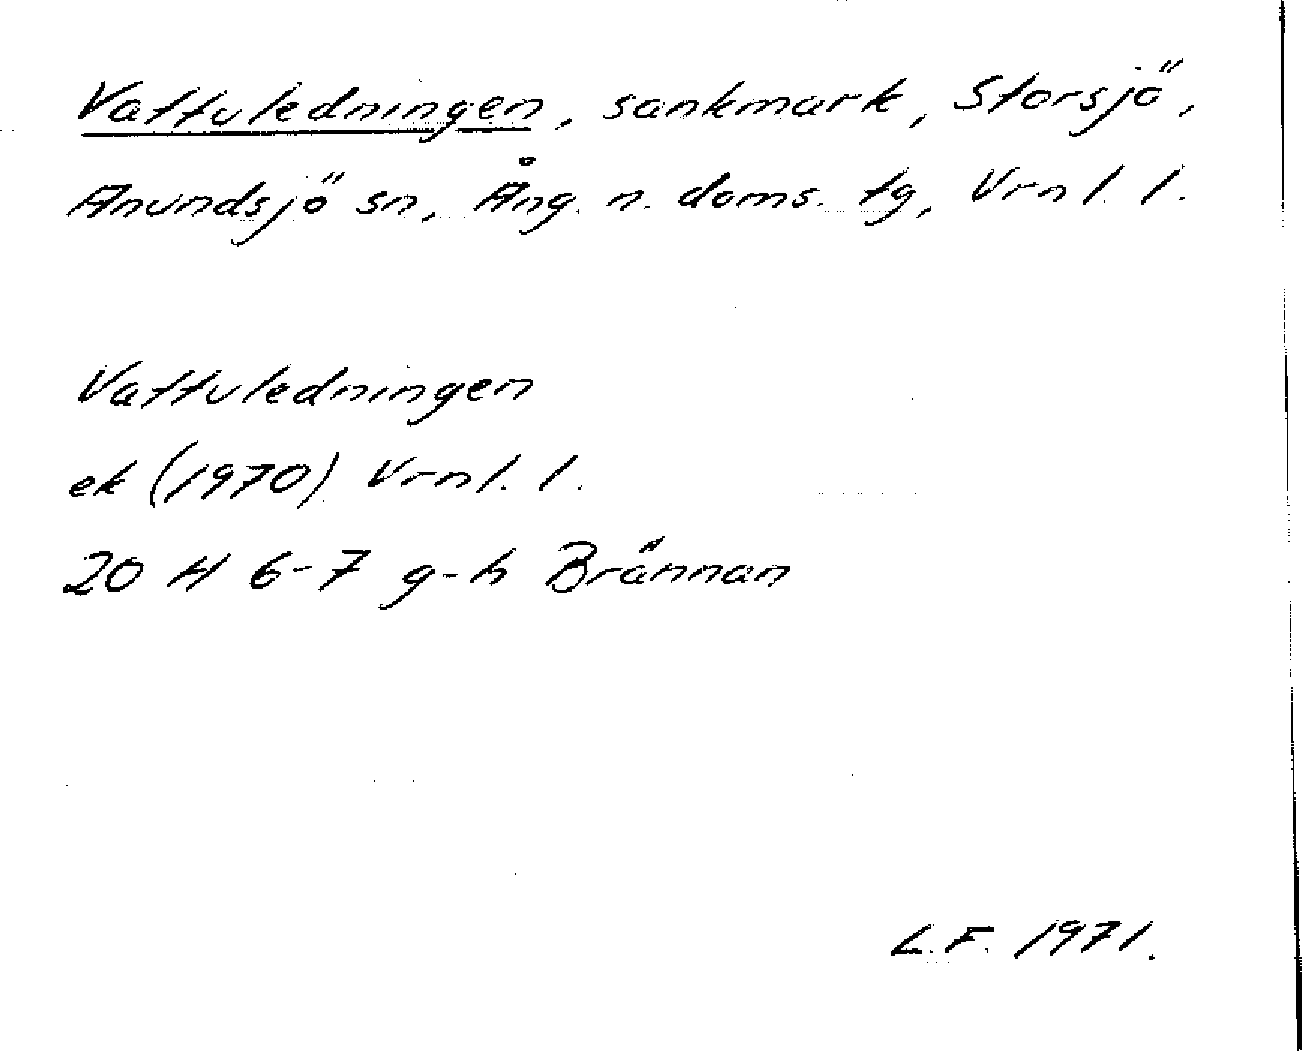 Vattuledningen, sankmark, Storsjö,
Anundsjö sn, Ång. n. doms. tg, Vrnl. l.
Vattuledningen
ek (1970) Vrnl. l.
20 H 6-7 g-h Brännan
L.F. 1971.